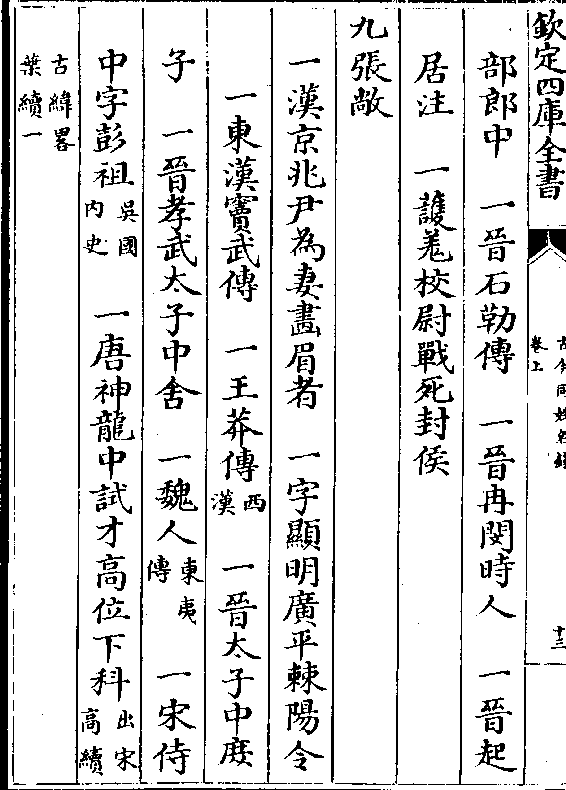 欽定四庫全書
卷上
十三
部郎中　一晉石勒傳　一晉冉閔時人　一晉起
居注　一護羌校尉戰死封侯
九張敞
一漢京兆尹為妻畫眉者　一字顯明廣平棘陽令
一東漢竇武傳　一王莽傳西漢　一晉太子中庶
子　一晉孝武太子中舍　一魏人東夷傳　一宋侍
中字彭祖吳國内史　一唐神龍中試才高位下科出宋高續
古緯畧葉續一